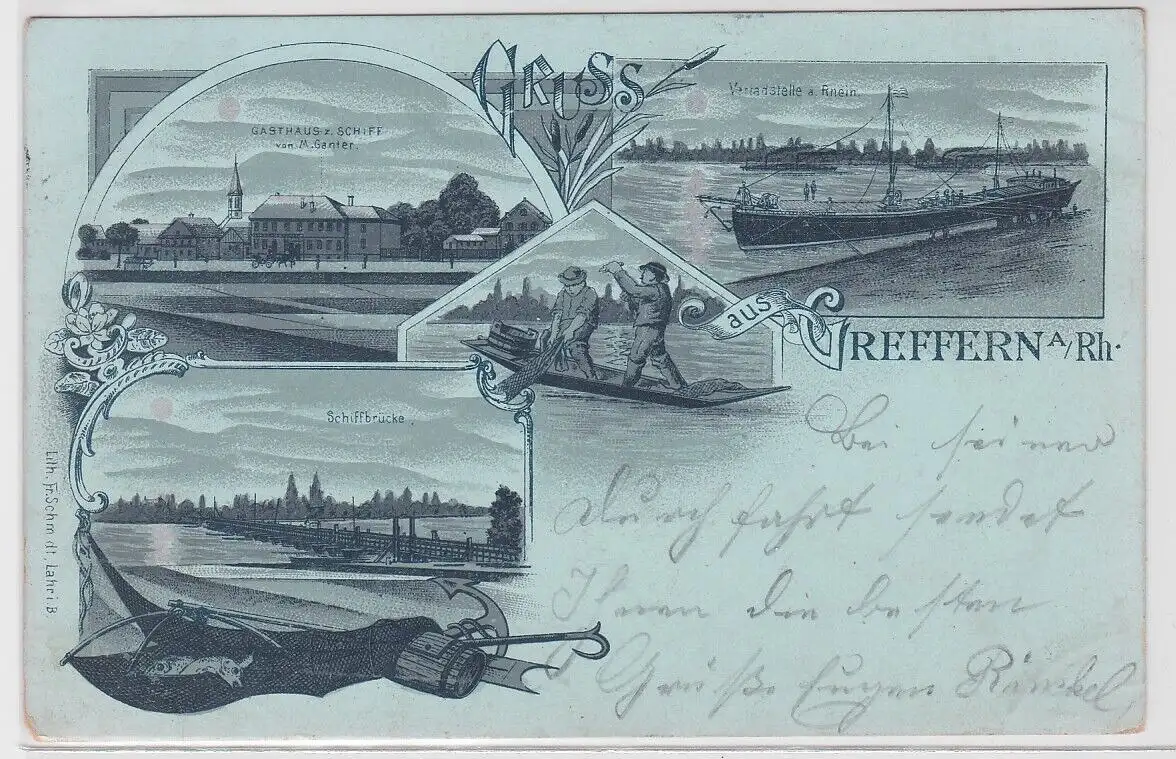 GRUSS
aus
TREFFERN A/Rh.
GASTHAUS z. SCHIFF
von M. Ganter.
Verladstelle a. Rhein.
Schiffbrücke.
Lith. Fr. Schmidt Lahr i. B.
Bei seiner
Durchfahrt sendet
Ihnen die besten
Grüße Eugen